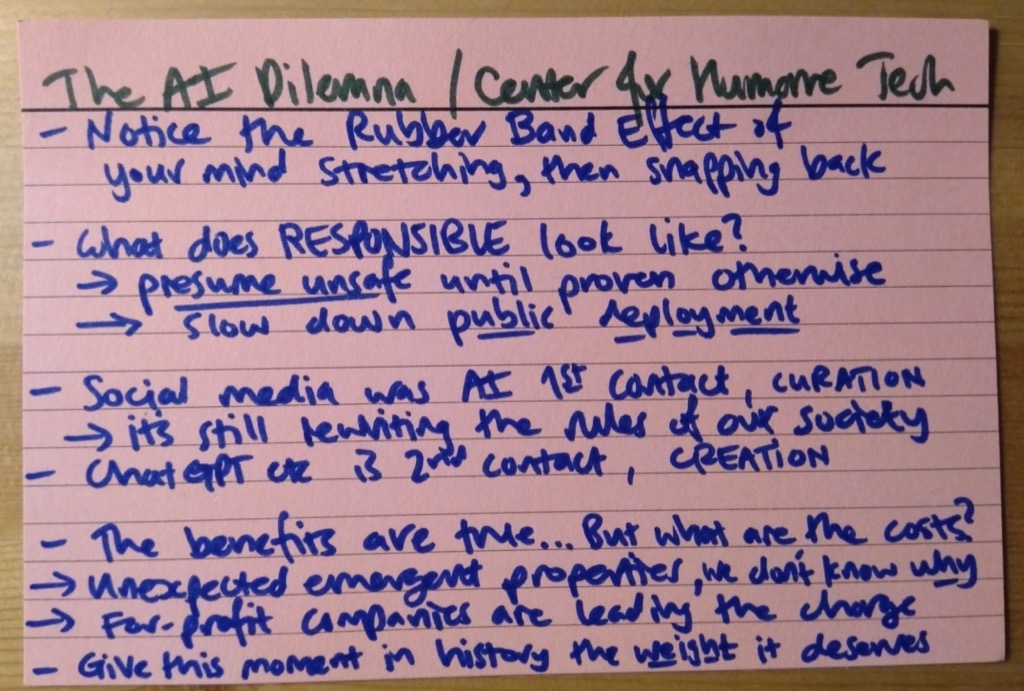 The AI Dilemna / Center for Humane Tech
- Notice the Rubber Band Effect of
your mind stretching, then snapping back
- What does RESPONSIBLE look like?
→ presume unsafe until proven otherwise
→ slow down public deployment
- Social media was AI 1st contact, CURATION
→ its still rewriting the rules of our society
- ChatGPT etc is 2nd contact, CREATION
- The benefits are true... But what are the costs?
→ Unexpected emergent properties, we don't know why
→ For-profit companies are leading the charge
- Give this moment in history the weight it deserves